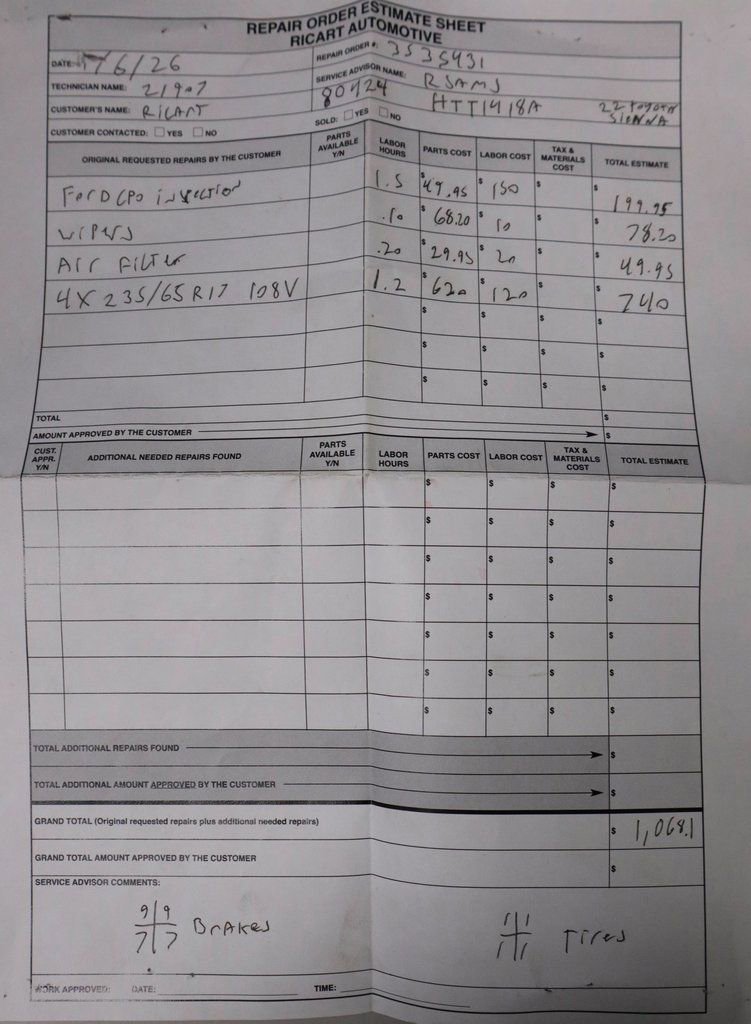 REPAIR ORDER ESTIMATE SHEET
RICART AUTOMOTIVE
DATE: 7/6/26 REPAIR ORDER #: 3535431
TECHNICIAN NAME: 21907 SERVICE ADVISOR NAME: RSAMS
80424
CUSTOMER'S NAME: RICART HTT1418A 22 TOYOTA SIENNA
CUSTOMER CONTACTED: YES NO SOLD: YES NO
ORIGINAL REQUESTED REPAIRS BY THE CUSTOMER PARTS AVAILABLE Y/N LABOR HOURS PARTS COST LABOR COST TAX & MATERIALS COST TOTAL ESTIMATE
FORD CPO inspection 1.5 $49.95 $150 $ $199.95
WIPERS .10 $68.20 $10 $ $78.20
AIR FILTER .20 $29.95 $20 $ $49.95
4X 235/65R17 108V 1.2 $620 $120 $ $740
$ $ $ $
$ $ $ $
$ $ $ $
TOTAL $
AMOUNT APPROVED BY THE CUSTOMER $
CUST. APPR. Y/N ADDITIONAL NEEDED REPAIRS FOUND PARTS AVAILABLE Y/N LABOR HOURS PARTS COST LABOR COST TAX & MATERIALS COST TOTAL ESTIMATE
$ $ $ $
$ $ $ $
$ $ $ $
$ $ $ $
$ $ $ $
$ $ $ $
$ $ $ $
TOTAL ADDITIONAL REPAIRS FOUND $
TOTAL ADDITIONAL AMOUNT APPROVED BY THE CUSTOMER $
GRAND TOTAL (Original requested repairs plus additional needed repairs) $ 1,068.1
GRAND TOTAL AMOUNT APPROVED BY THE CUSTOMER $
SERVICE ADVISOR COMMENTS:
9 9 11 11
7 7 Brakes 11 11 Tires
WORK APPROVED: DATE: TIME: